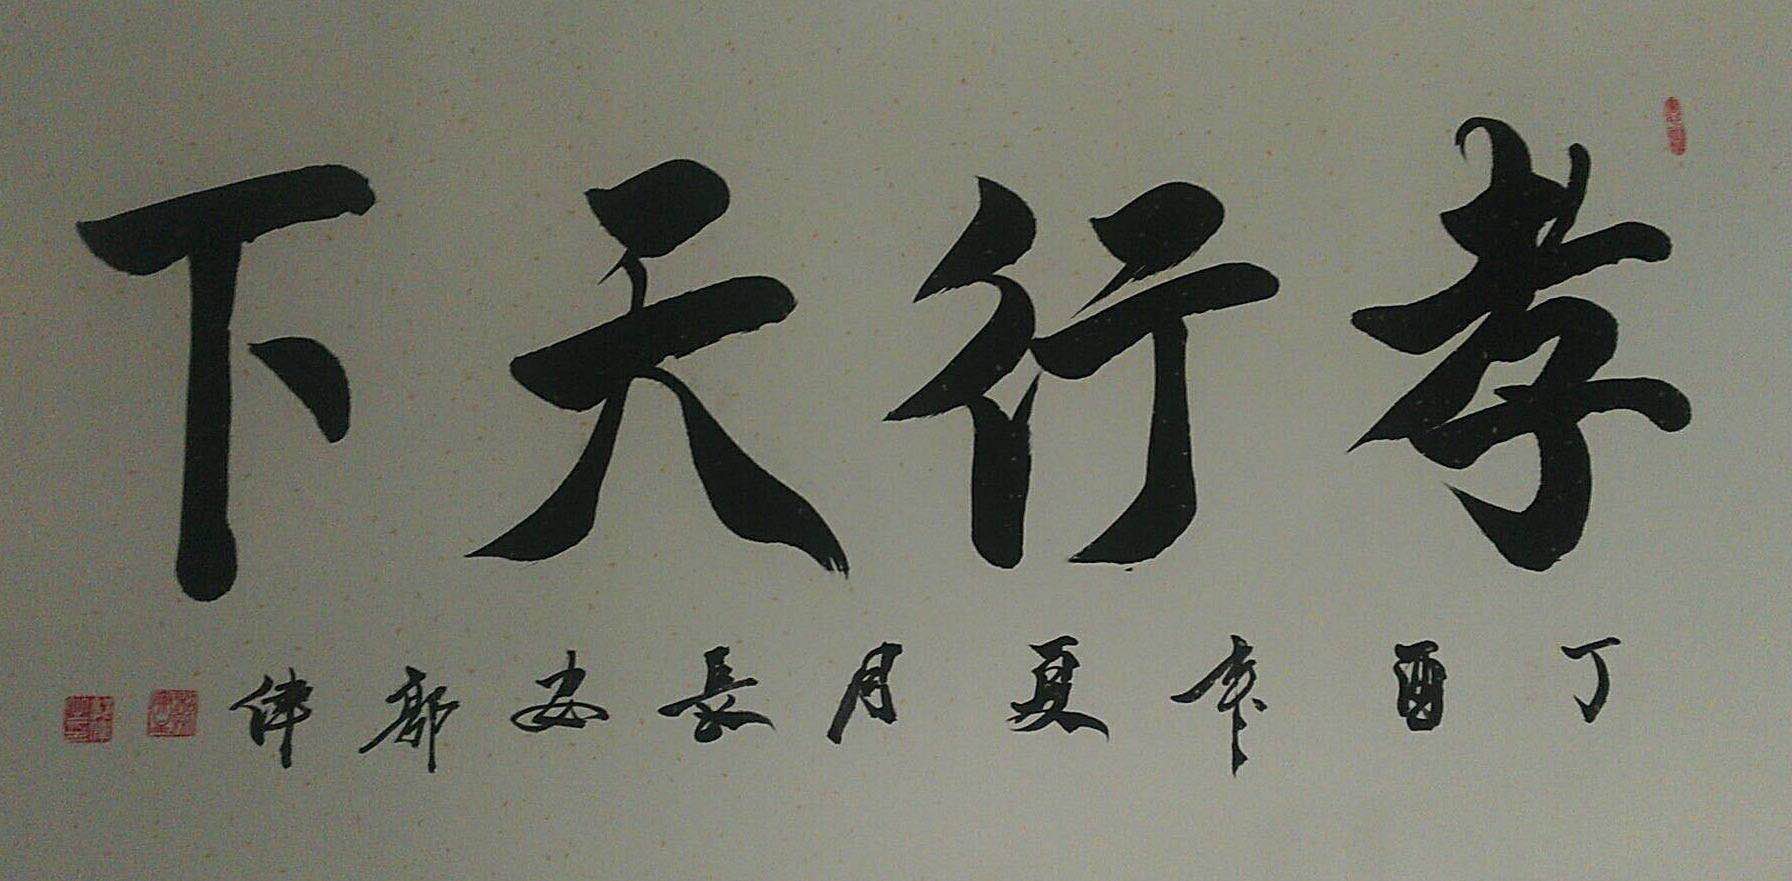 孝行天下
丁酉年夏月長安郭偉